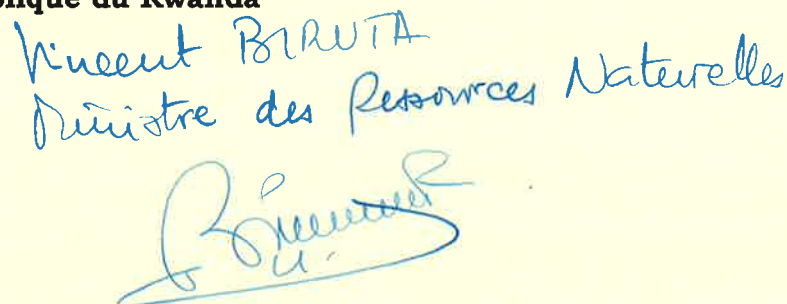 du Rwanda
Vincent BIRUTA
Ministre des Ressources Naturelles